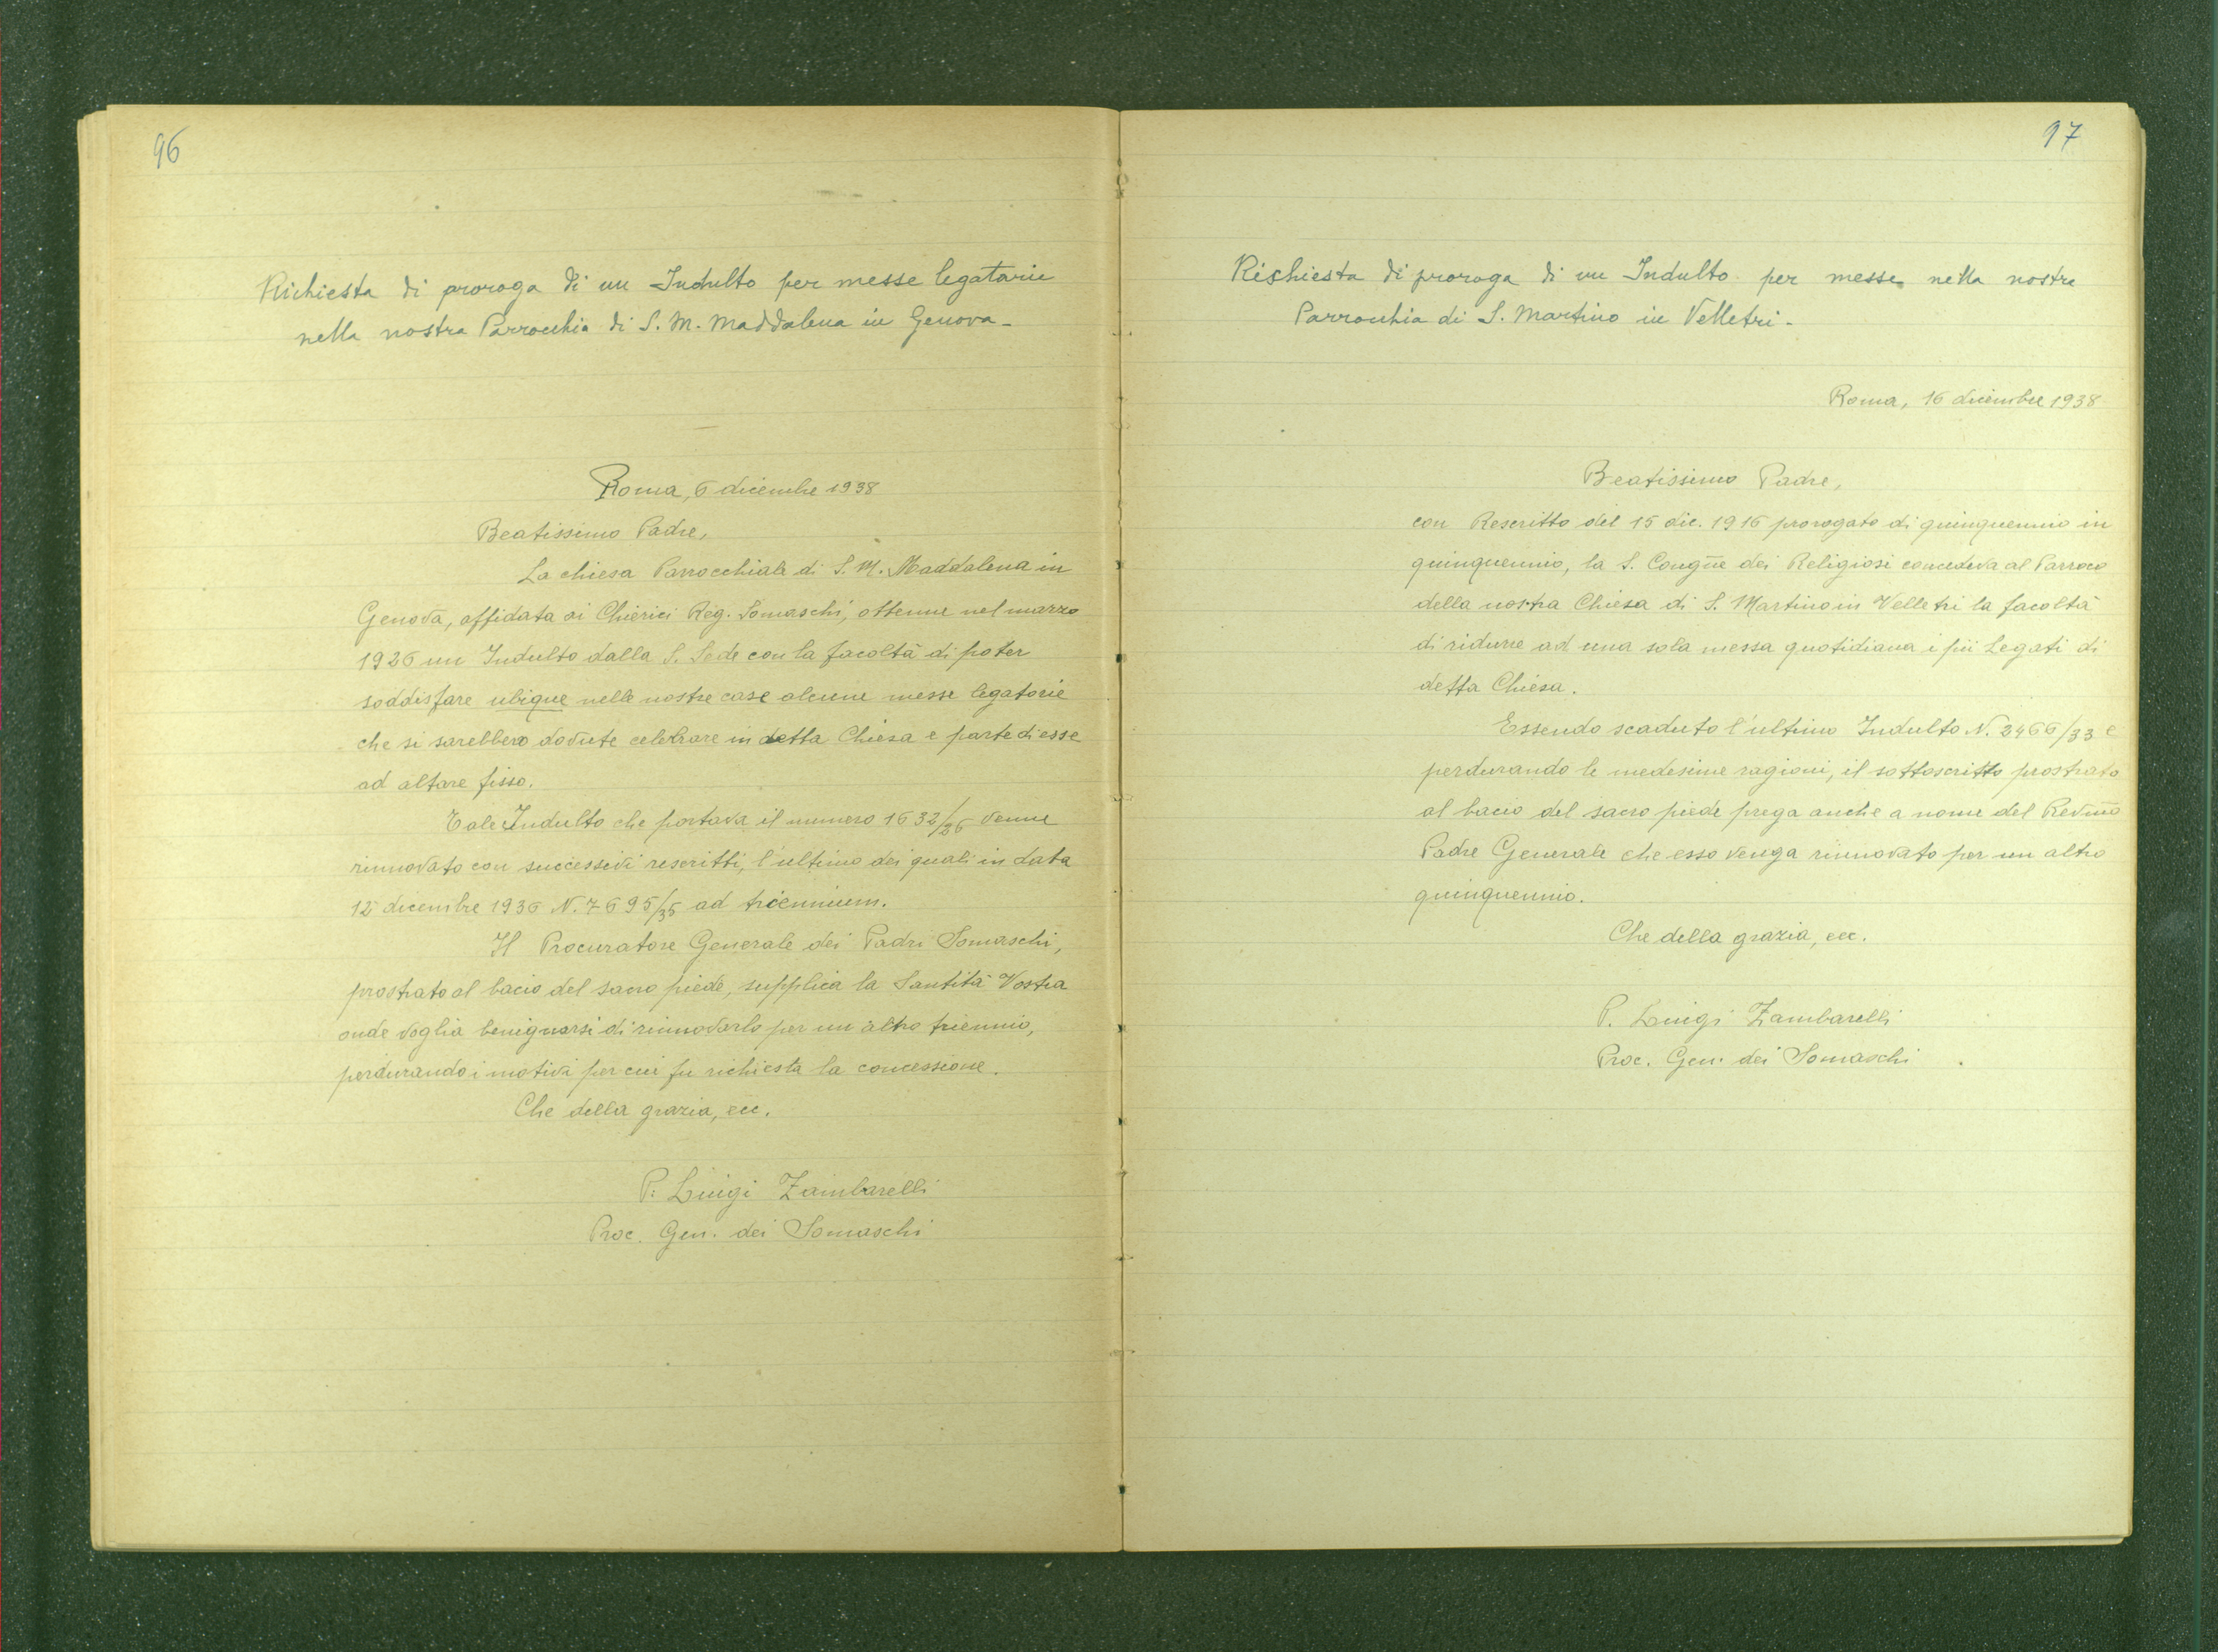 96
Richiesta di proroga di un Indulto per messe legatarie
nella nostra Parrocchia di S. M. Maddalena in Genova -
Roma, 6 dicembre 1938
Beatissimo Padre,
La chiesa Parrocchiale di S. M. Maddalena in
Genova, affidata ai Chierici Reg. Somaschi, ottenne nel marzo
1926 un Indulto dalla S. Sede con la facoltà di poter
soddisfare ubique nelle nostre case alcune messe legatarie
che si sarebbero dovute celebrare in detta Chiesa e parte di esse
ad altare fisso.
Tale Indulto che portava il numero 1632/26 venne
rinnovato con successivi rescritti, l'ultimo dei quali in data
12 dicembre 1936 N. 7695/35 ad triennium.
Il Procuratore Generale dei Padri Somaschi,
prostrato al bacio del sacro piede, supplica la Santità Vostra
onde voglia benignarsi di rinnovarlo per un altro triennio,
perdurando i motivi per cui fu richiesta la concessione.
Che della grazia, ecc.
P. Luigi Zambarelli
Proc. Gen. dei Somaschi
97
Richiesta di proroga di un Indulto per messe nella nostra
Parrocchia di S. Martino in Velletri -
Roma, 16 dicembre 1938
Beatissimo Padre,
con Rescritto del 15 dic. 1916 prorogato di quinquennio in
quinquennio, la S. Congñe dei Religiosi concedeva al Parroco
della nostra Chiesa di S. Martino in Velletri la facoltà
di ridurre ad una sola messa quotidiana i pii Legati di
detta Chiesa.
Essendo scaduto l'ultimo Indulto N. 2466/33 e
perdurando le medesime ragioni, il sottoscritto prostrato
al bacio del sacro piede prega anche a nome del Revmo
Padre Generale che esso venga rinnovato per un altro
quinquennio.
Che della grazia, ecc.
P. Luigi Zambarelli
Proc. Gen. dei Somaschi